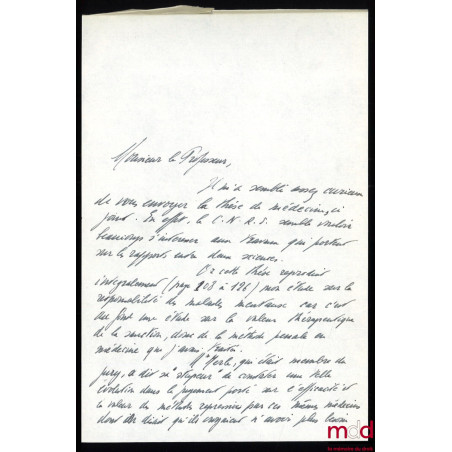 Monsieur le Professeur,
Il m'a semblé assez curieux
de vous envoyer la thèse de médecine, ci
joint. En effet, le C.N.R.S. semble vouloir
beaucoup s'informer aux travaux qui portent
sur les rapports entre deux sciences.
Or cette thèse reproduit
intégralement (page 108 à 126) mon étude sur la
responsabilité des malades mentaux car c'est
au fond une étude sur la valeur thérapeutique
de la sanction, donc de la méthode pénale en
médecine que j'avais
qui était membre du
jury, a dit sa "stupeur" de constater une telle
évolution dans le jugement porté sur l'efficacité et
la valeur des méthodes répressives par ces mêmes médecins
dont on disait qu'ils n'avoir plus besoin
mdd
la mémoire du droit